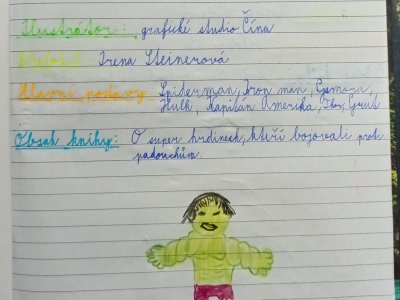 Ilustrátor: grafické studio Čína
Přeložil: Irena Steinerová
Hlavní postavy: Spiderman, Iron man, Gamora,
Hulk, Kapitán Amerika, Thor, Grut
Obsah knihy: O super hrdinech, kteří bojovali proti
padouchům.